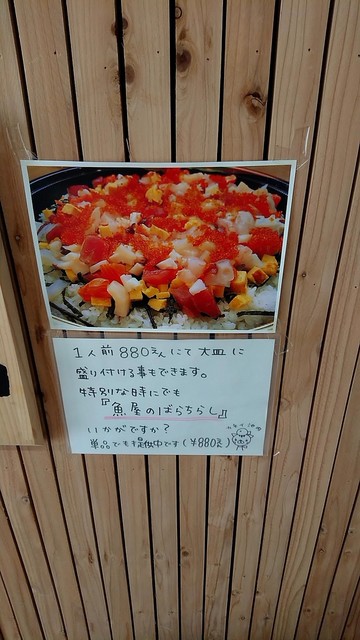 1人前880えんにて大皿に
盛り付ける事もできます。
特別な時にでも
『魚屋のばらちらし』
いかがですか?
単品でも提供中です(¥880え)